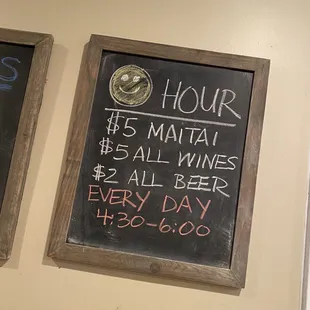 HOUR
$5 MAITAI
$5 ALL WINES
$2 ALL BEER
EVERY DAY
4:30-6:00